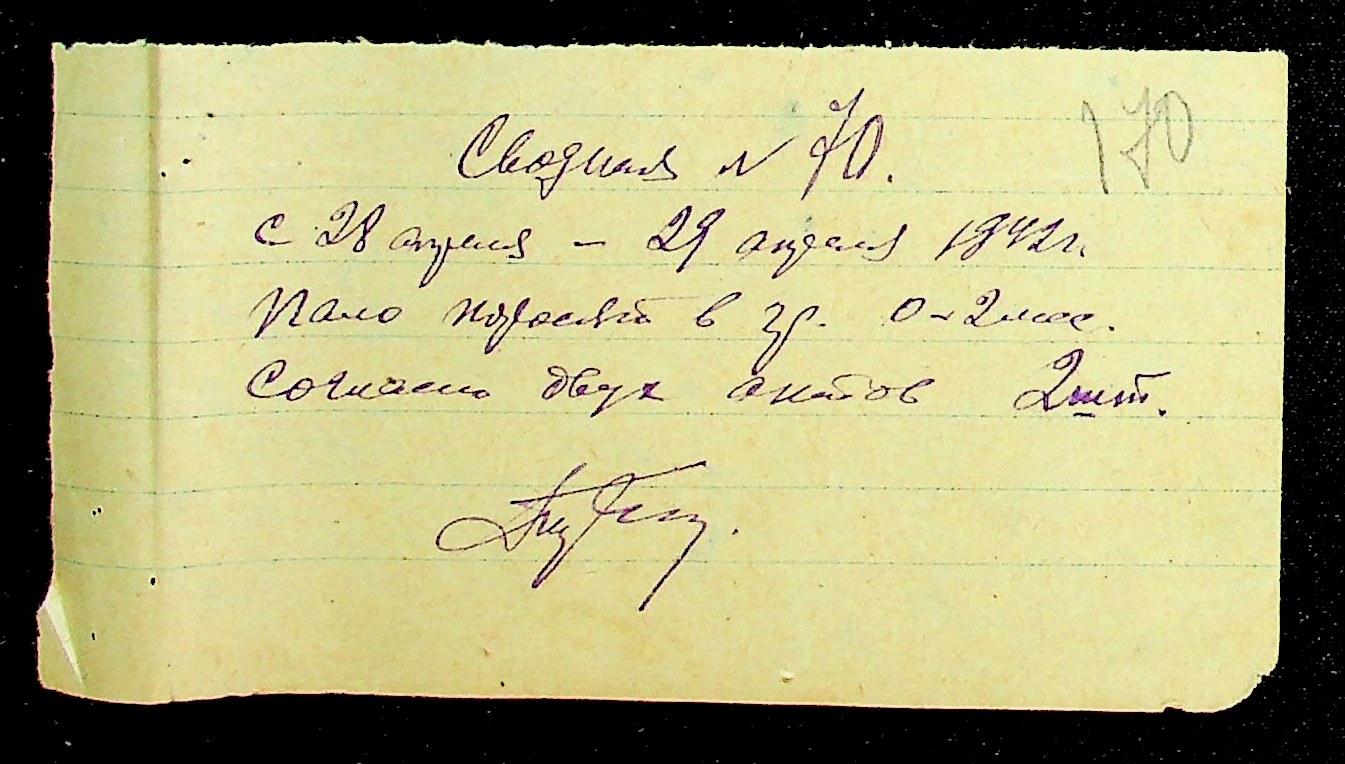 170
Сводная N 70.
с 28 апреля – 29 апреля 1942 г.
Пало поросят в гр. 0–2 мес.
Согласно двух актов 2 шт.